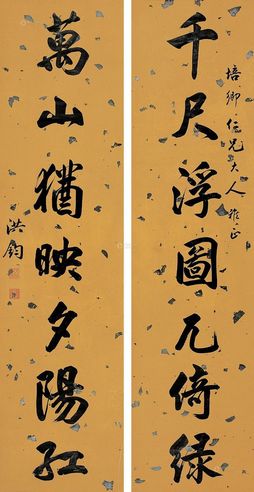 千尺浮圖兀倚緑
培卿仁兄大人雅正
萬山猶映夕陽紅
洪鈞